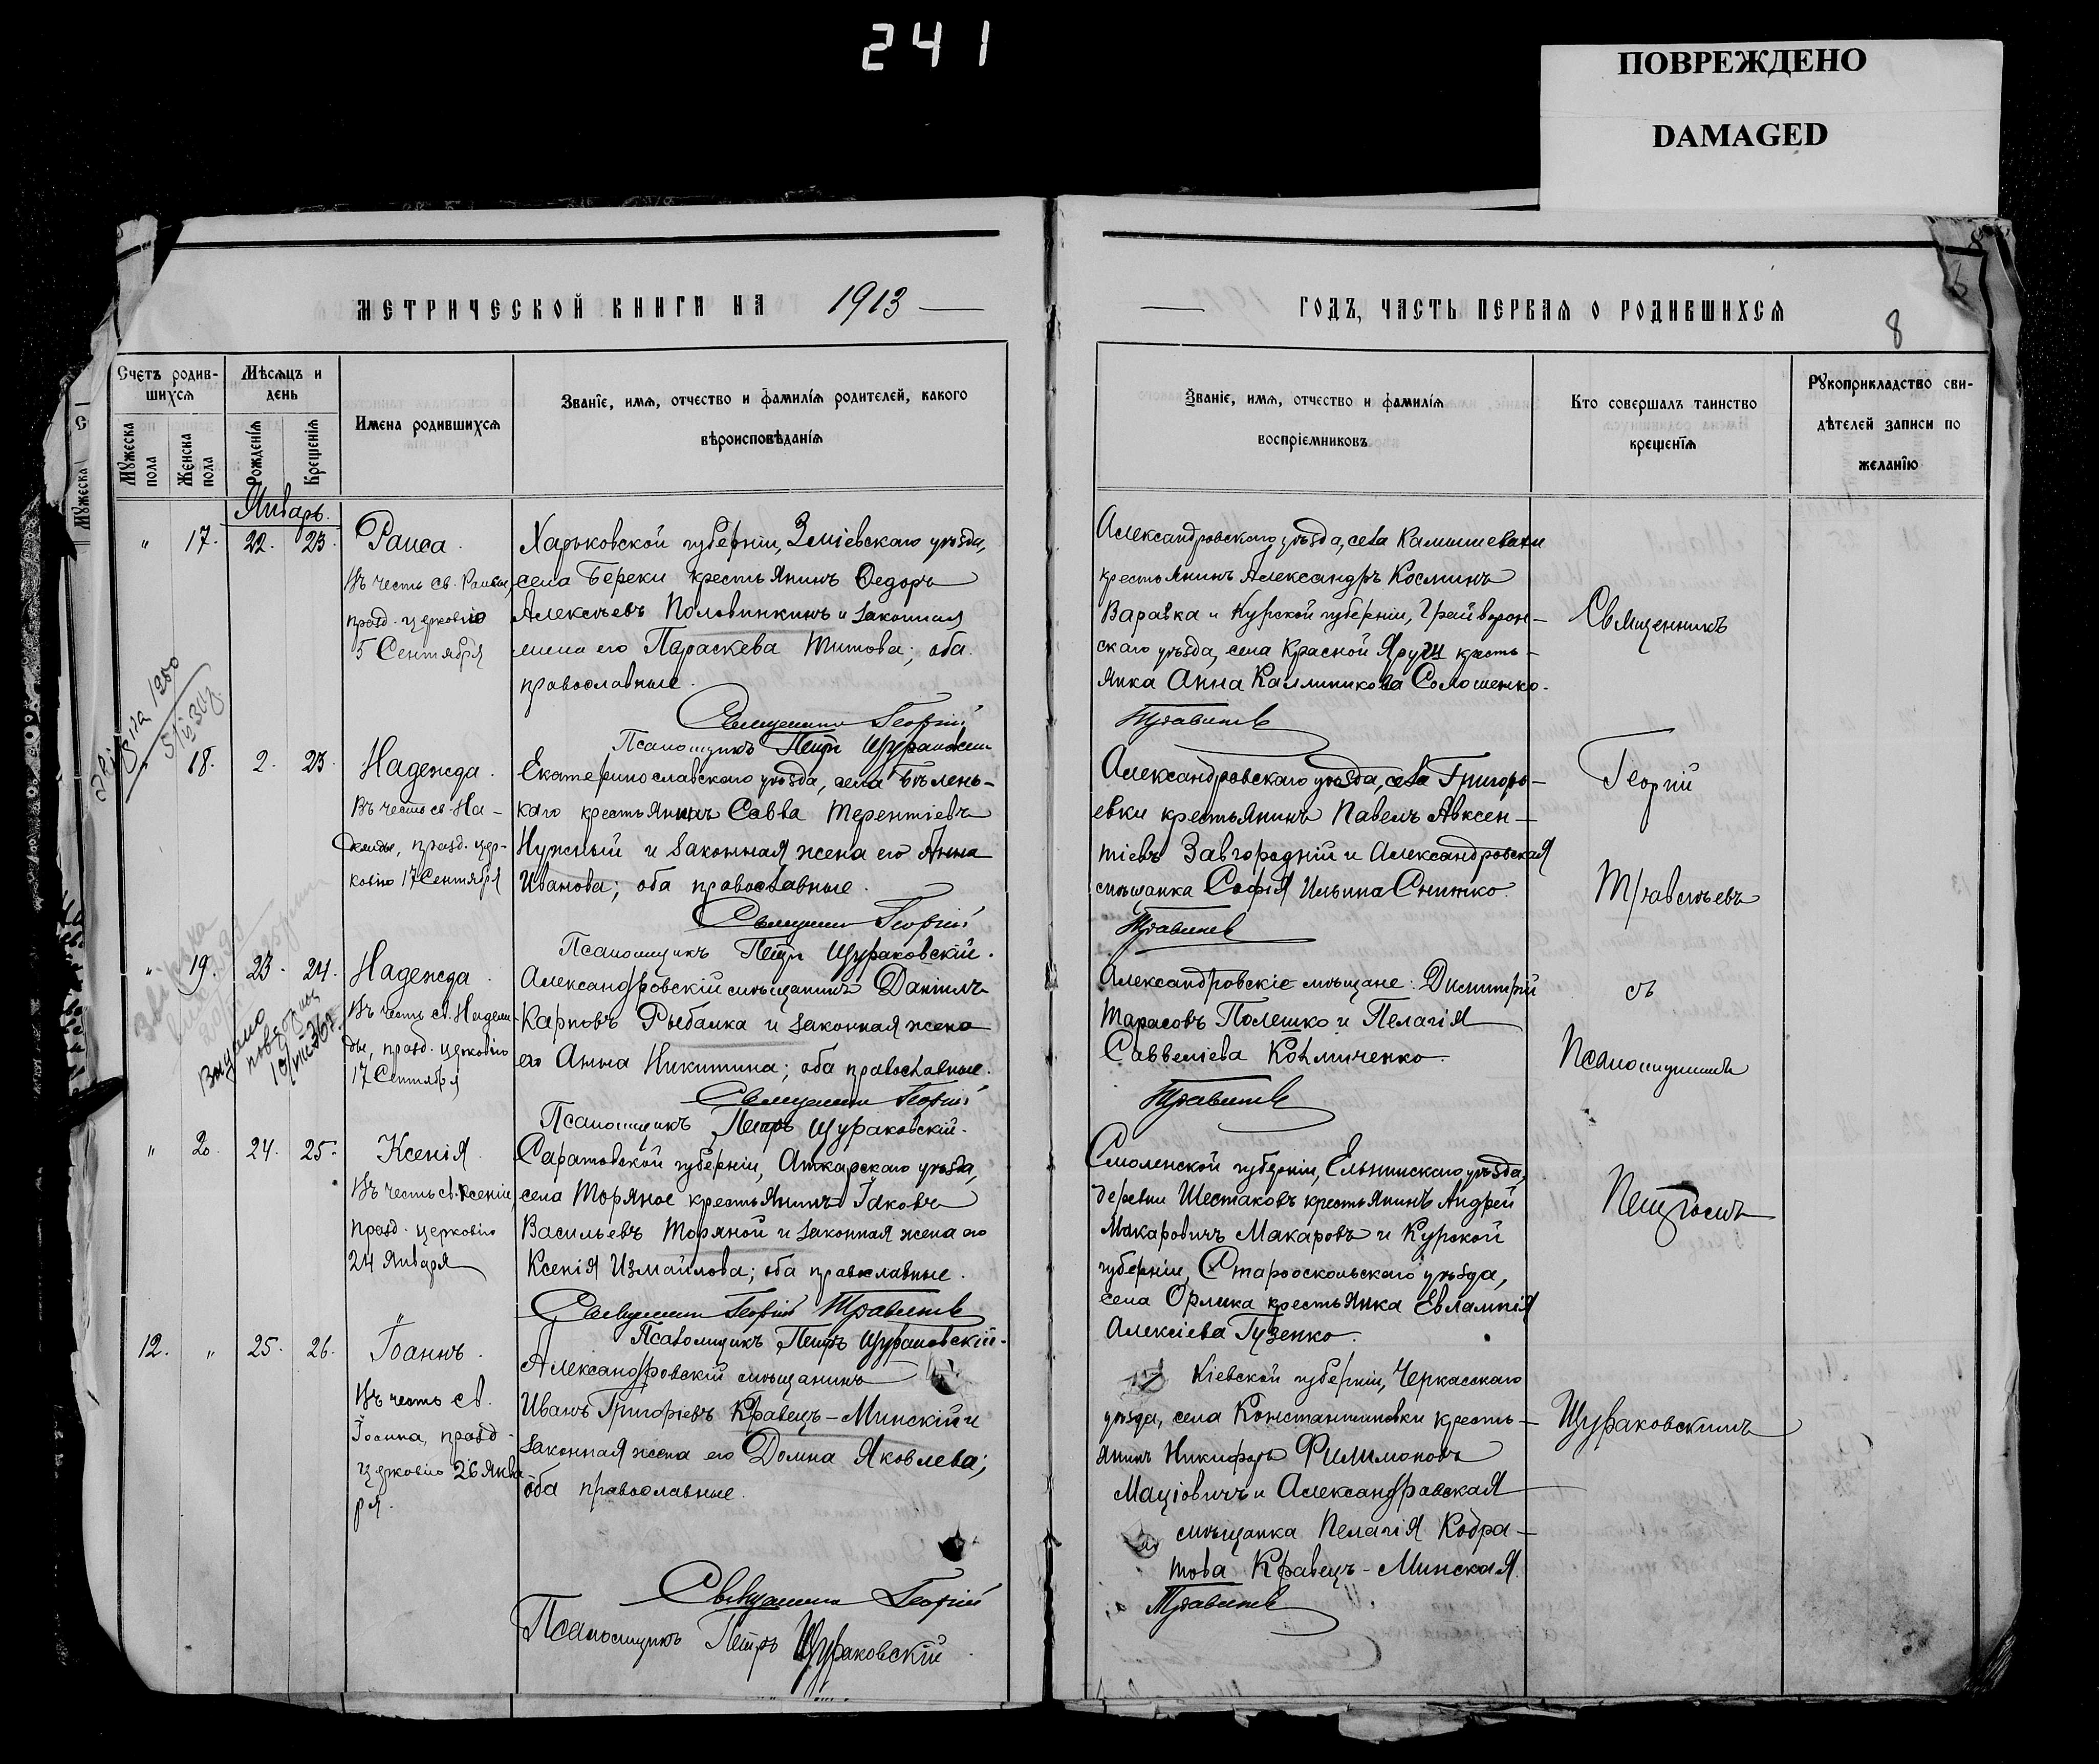 241
ПОВРЕЖДЕНО
DAMAGED
МЕТРИЧЕСКОЙ КНИГИ НА 1913
Счетъ родив-
шихся
Мѣсяцъ и
день
Мужеска
пола
Женска
пола
Рожденія
Крещенія
Имена родившихся
Званіе, имя, отчество и фамилія родителей, какого
вѣроисповѣданія
Мужеска
Январь.
" 17. 22. 23.
Раиса.
Въ честь св. Раисы,
празд. церковію
5 Сентября
Харьковской губерніи, Зміевскаго уѣзда,
села Береки крестьянинъ Ѳедоръ
Алексѣевъ Половинкинъ и законная
жена его Параскева Титова; оба
православные.
Священникъ Георгій
Псаломщикъ Петръ Щураковскій
18. 2. 23.
Надежда.
Въ честь св. На-
дежды, празд. цер-
ковію 17 Сентября
Екатеринославскаго уѣзда, села Бѣлень-
каго крестьянинъ Савва Терентіевъ
Нужный и законная жена его Анна
Иванова; оба православные.
Священникъ Георгій
Псаломщикъ Петръ Щураковскій.
" 19. 23. 24.
Надежда.
Въ честь св. Надеж-
ды, празд. церковію
17 Сентября
Выдано
повторно
Александровскій мѣщанинъ Даніилъ
Карповъ Рыбалка и законная жена
его Анна Никитина; оба православные.
Священникъ Георгій
Псаломщикъ Петръ Щураковскій.
" 20. 24. 25.
Ксенія.
Въ честь св. Ксеніи,
празд. церковію
24 Января
Саратовской губерніи, Аткарскаго уѣзда,
села Торяное крестьянинъ Іаковъ
Васильевъ Торяной и законная жена его
Ксенія Измайлова; оба православные.
Священникъ Георгій Травинѣвъ
Псаломщикъ Петръ Щураковскій.
12. " 25. 26.
Іоаннъ.
Въ честь св.
Іоанна, празд.
церковію 26 Янва
ря.
Александровскій мѣщанинъ
Иванъ Григоріевъ Кравецъ-Минскій и
законная жена его Домна Яковлева;
оба православные.
Священникъ Георгій
Псаломщикъ Петръ Щураковскій
ГОДЪ, ЧАСТЬ ПЕРВАЯ О РОДИВШИХСЯ
8
Званіе, имя, отчество и фамилія
воспріемниковъ
Кто совершалъ таинство
крещенія
Рукоприкладство сви-
дѣтелей записи по
желанію
Александровскаго уѣзда, села Камышевахи
крестьянинъ Александръ Косминъ
Варавка и Курской губерніи, Грайворон-
скаго уѣзда, села Красной Яруги кресть-
янка Анна Каллиникова Солошенко.
Александровскаго уѣзда, села Григорь-
евки крестьянинъ Павелъ Авксен-
тіевъ Завгородній и Александровская
мѣщанка Софія Ильина Снижко.
Александровскіе мѣщане: Димитрій
Тарасовъ Полешко и Пелагія
Саввеліева
Смоленской губерніи, Ельнинскаго уѣзда,
деревни Шестаковъ крестьянинъ Андрей
Макаровичъ Макаровъ и Курской
губерніи, Старооскольскаго уѣзда,
села Орлика крестьянка Евлампія
Алексіева Гузенко.
Кіевской губерніи, Черкасскаго
уѣзда, села Константиновки кресть-
янинъ Никифоръ Филимоновъ
Маціовичъ и Александровская
мѣщанка Пелагія Кодра-
това Кравецъ-Минская.
Священникъ
Георгій
съ
Псаломщикомъ
Петромъ
Щураковскимъ